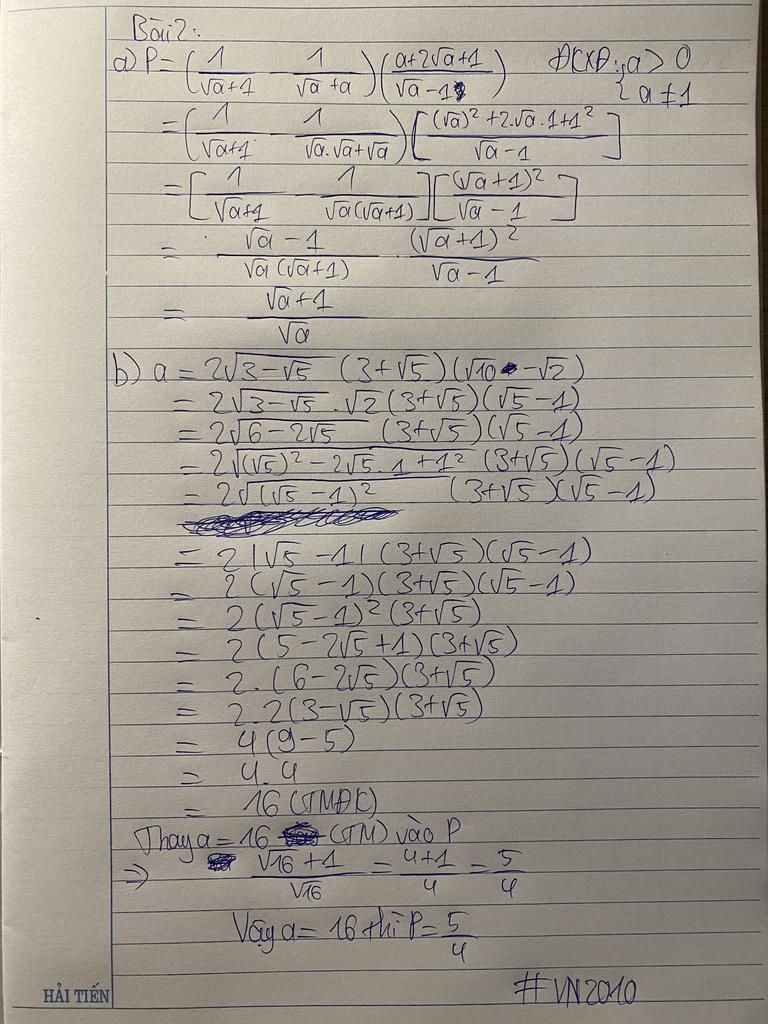 Bài 2:
a) P = (1/(√a+1) - 1/(√a+a)) ((a+2√a+1)/(√a-1)) ĐKXĐ: { a > 0
{ a ≠ 1
= (1/(√a+1) - 1/(√a.√a+√a)) [((√a)²+2.√a.1+1²)/(√a-1)]
= [1/(√a+1) - 1/(√a(√a+1))] [(√a+1)²/(√a-1)]
= (√a-1)/(√a(√a+1)) . (√a+1)²/(√a-1)
= (√a+1)/√a
b) a = 2√(3-√5) (3+√5)(√10 - √2)
= 2√(3-√5) . √2 (3+√5)(√5-1)
= 2√(6-2√5) (3+√5)(√5-1)
= 2√((√5)²-2√5.1+1²) (3+√5)(√5-1)
= 2√((√5-1)²) (3+√5)(√5-1)
= 2|√5-1|(3+√5)(√5-1)
= 2(√5-1)(3+√5)(√5-1)
= 2(√5-1)²(3+√5)
= 2(5-2√5+1)(3+√5)
= 2.(6-2√5)(3+√5)
= 2.2(3-√5)(3+√5)
= 4(9-5)
= 4.4
= 16 (TMĐK)
Thay a = 16 (TM) vào P
⇒ (√16+1)/√16 = (4+1)/4 = 5/4
Vậy a = 16 thì P = 5/4
#VN2010
HẢI TIẾN